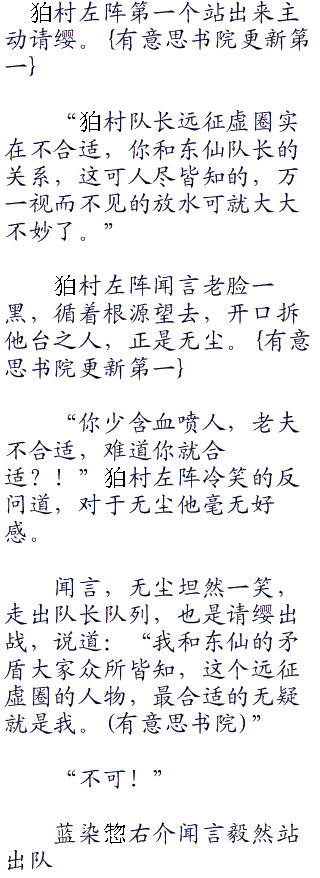 狛村左阵第一个站出来主
动请缨。{有意思书院更新第
一}
“狛村队长远征虚圈实
在不合适，你和东仙队长的
关系，这可人尽皆知的，万
一视而不见的放水可就大大
不妙了。”
狛村左阵闻言老脸一
黑，循着根源望去，开口拆
他台之人，正是无尘。{有意
思书院更新第一}
“你少含血喷人，老夫
不合适，难道你就合
适？！”狛村左阵冷笑的反
问道，对于无尘他毫无好
感。
闻言，无尘坦然一笑，
走出队长队列，也是请缨出
战，说道：“我和东仙的矛
盾大家众所皆知，这个远征
虚圈的人物，最合适的无疑
就是我。(有意思书院)”
“不可！”
蓝染惣右介闻言毅然站
出队